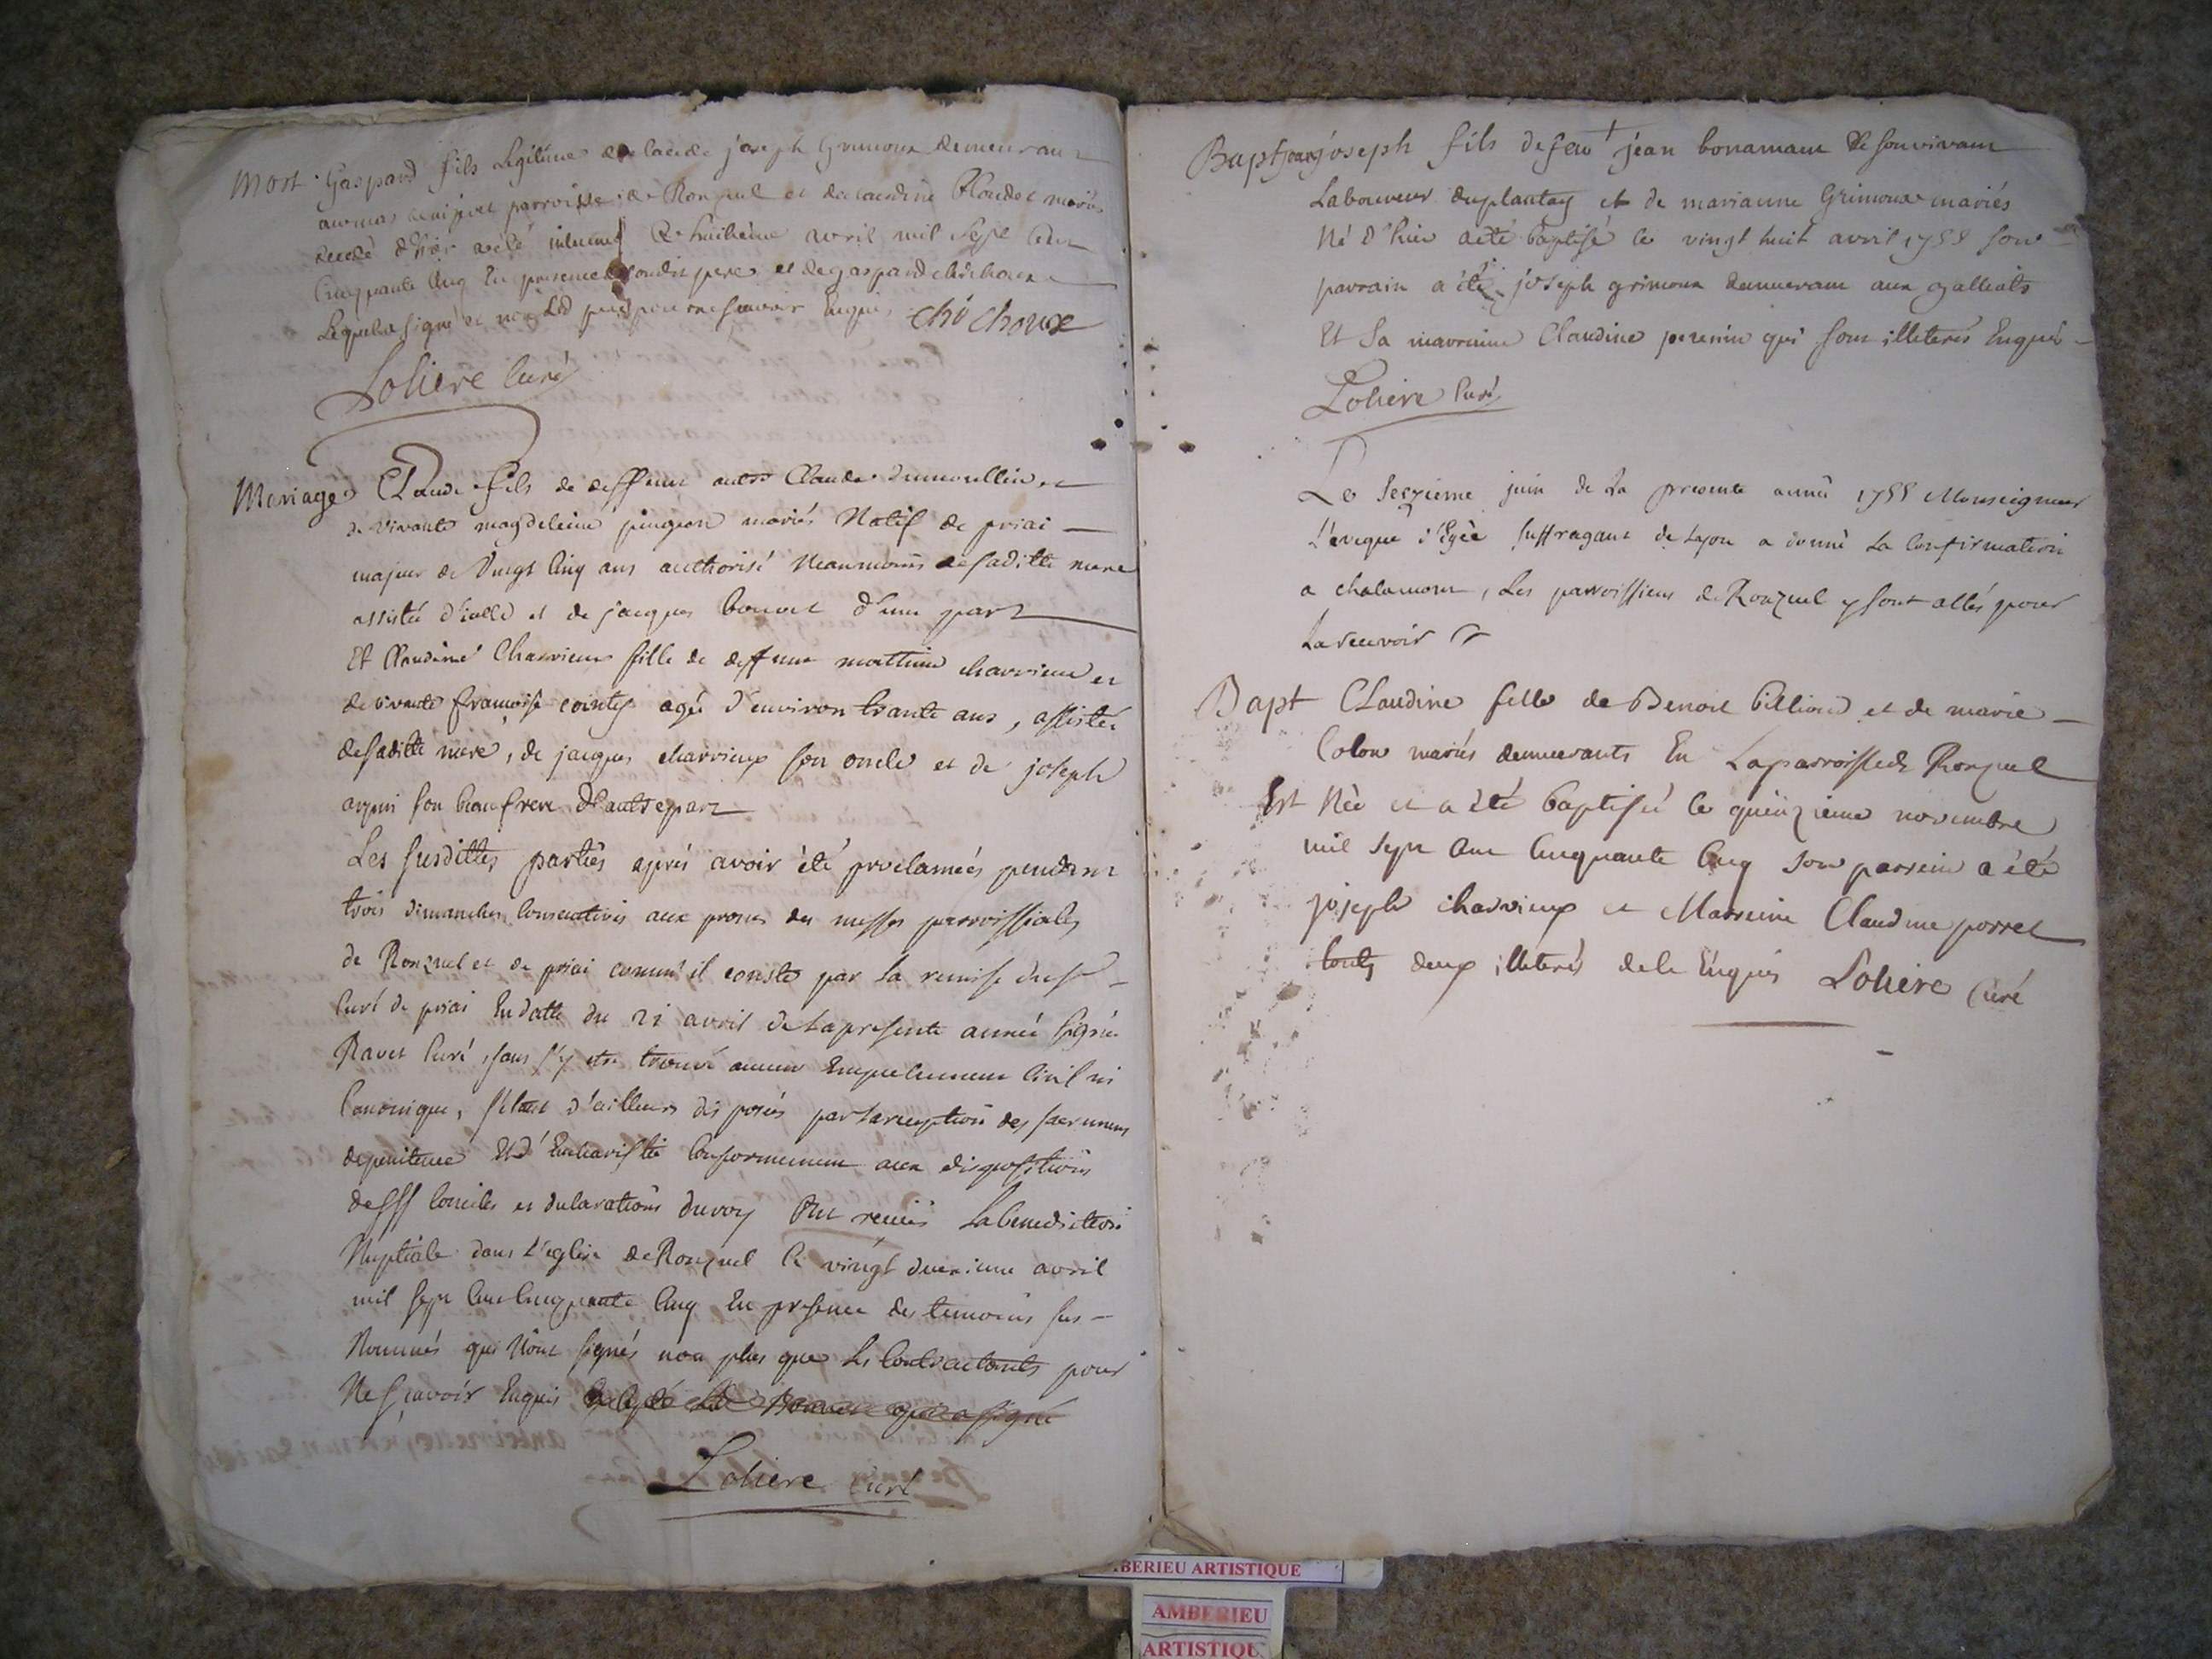 Mort Gaspard fils Legitime de joseph Grimoux demeurant
parroisse de Ronzuel et de claudine mariés
decedé d'hier a eté inhumé le huitieme avril mil sept cent
Cinquante Cinq En presence dudit pere et de gaspard
Lequel a signé et non Led pere pour ne sçavoir Enquis chichoux
Loliere Curé
Mariage Claude fils de deffunt autre Claude dumoullin et
de vivante magdeleine pingeon mariés Natif de priai
majeur de Vingt Cinq ans authorisé Neanmoins de saditte mere
assisté d'icelle et de jacques bonnet d'une part
Et Claudine Charvieux fille de deffunt charvieux et
de vivante françoise cointy agée d'environ trante ans, assistée
de saditte mere, de jacques charvieux son oncle et de joseph
son beaufrere d'autre part
Les susdittes parties après avoir été proclamées pendant
trois dimanches Consecutives aux prones des messes parroissiales
de Ronzuel et de priai comm'il conste par la remise du Sr
Curé de priai En datte du 21 avril de la presente année signée
Ravet Curé, sans s'y etre trouvé aucun Empechement Civil ni
Canonique, s'etant d'ailleurs disposés par la reception des sacremens
de penitence Et d'Eucharistie Conformement aux dispositions
des SS Conciles et declarations du roy Ont reçuës La benediction
Nuptiale dans L'eglise de Ronzuel le vingt deuxieme avril
mil sept Cent Cinquante Cinq En presence des temoins sus-
Nommés qui N'ont signés non plus que les Contractants pour
Ne sçavoir Enquis
Loliere Curé
Bapt joseph fils de feu jean bonamant de son vivant
Laboureur du plantay et de marianne Grimoux mariés
Né d'hier a été baptisé le vingt huit avril 1755 son
parrain a été joseph grimoux demeurant aux
Et sa marraine Claudine perenin qui sont illeterés Enquis
Loliere Curé
Le seizieme juin de la presente année 1755 Monseigneur
L'eveque d'Egée suffragant de Lyon a donné la Confirmation
a chalamont, Les parroissiens de Ronzuel y sont allés pour
La recevoir
Bapt Claudine fille de Benoit billion et de marie
Colon mariés demeurants En La parroisse de Ronzuel
Est Née et a été baptisée le quinzieme novembre
mil sept Cent Cinquante Cinq son parrein a été
joseph charvieux et Marreine Claudine porret
touts deux illeterés de ce Enquis Loliere Curé
BERIEU ARTISTIQUE
AMBERIEU
ARTISTIQU